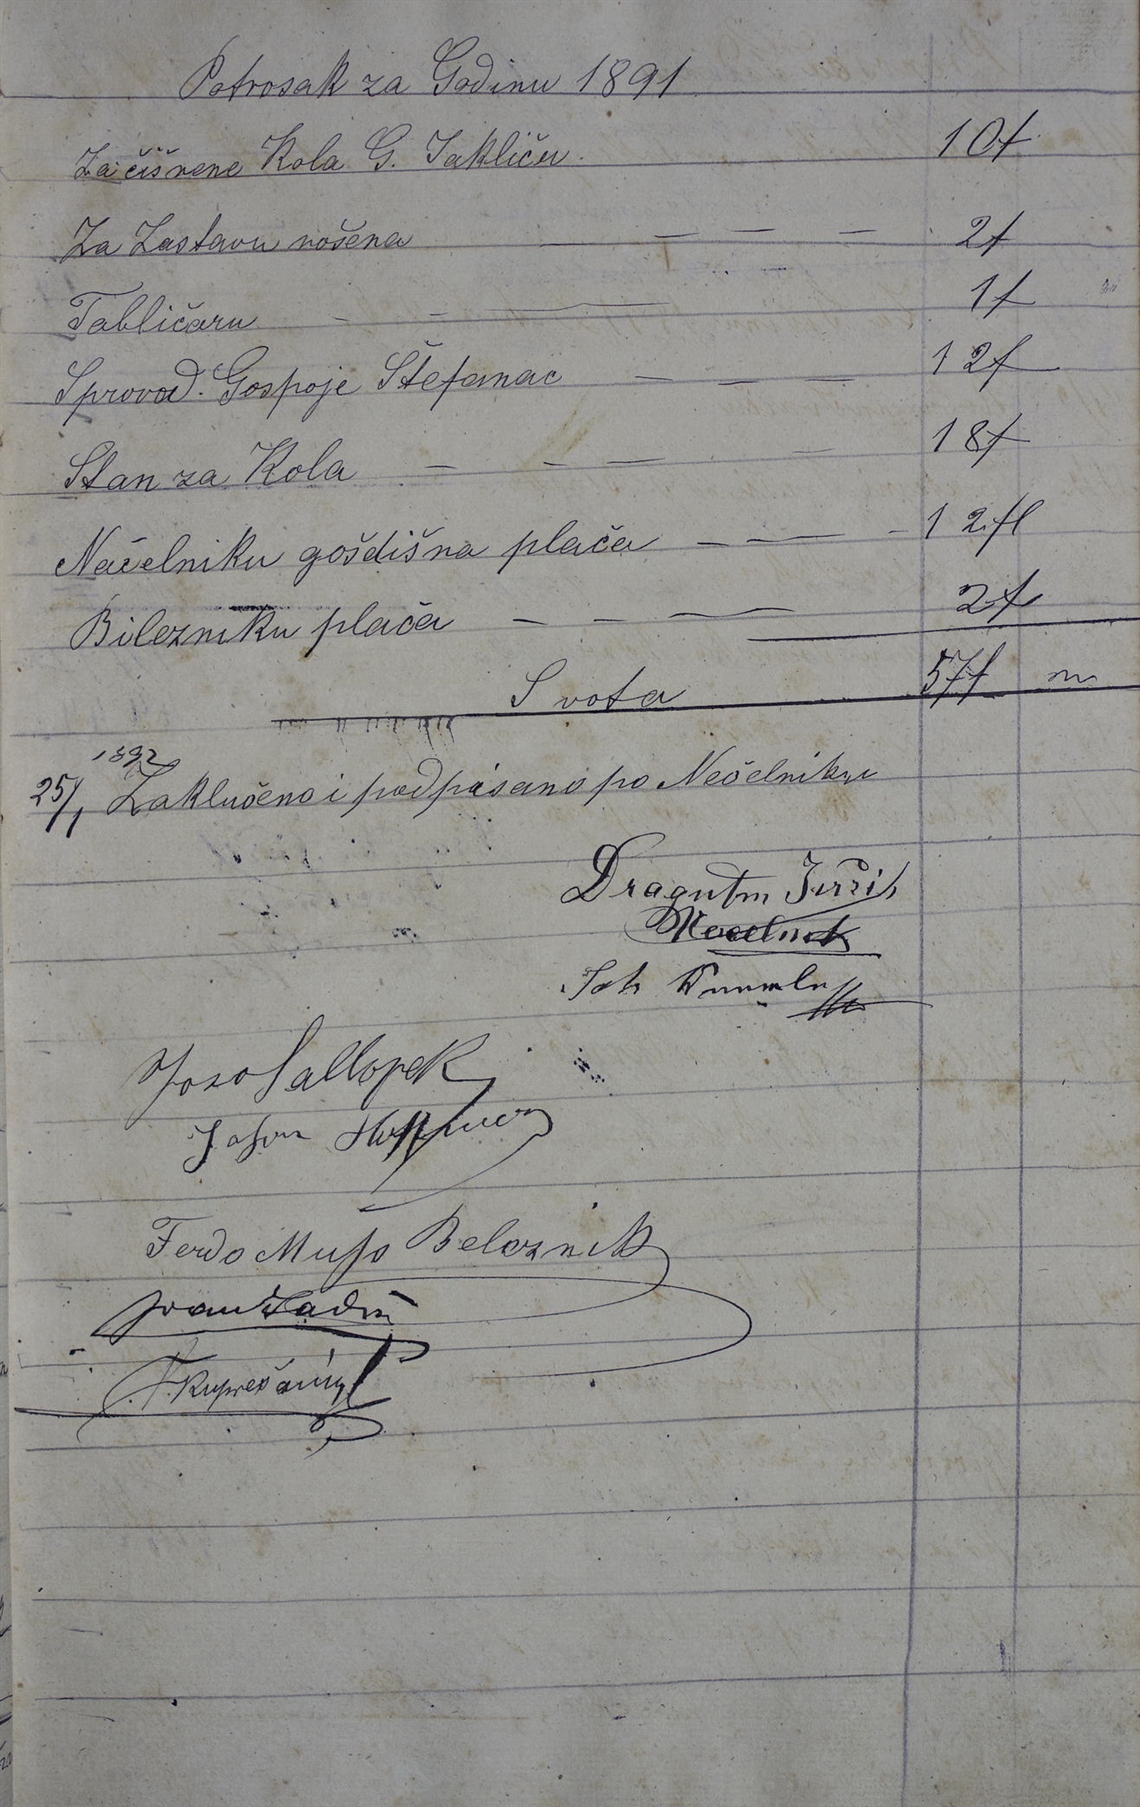 Potrosak za Godinu 1891
Za čišnene Kola G. Jakliču 10f
Za Zastavu nošena — — — — 2f
Tabličaru - - — 1f
Sprovod. Gospoje Štefanac — — — 12f
Stan za Kola — — — — 18f
Načelniku gošdišna plača — — — 12fl
Bilezniku plača — — — 2f
Svota 57f
25/1 1892 Zaključeno i podpisano po Nečelniku
Dragutin
Nacelnik
Joso Sallopek
Ferdo Mufso Beleznik
Ivan